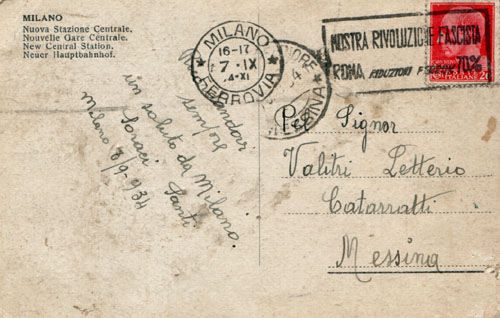 MILANO
Nuova Stazione Centrale.
Nouvelle Gare Centrale.
New Central Station.
Neuer Hauptbahnhof.
MILANO
16-17
7·IX
FERROVIA
MOSTRA RIVOLUZIONE FASCISTA
ROMA RIDUZIONI FERROV. 70%
sempre
un saluto da Milano.
Santi
Milano 8/9-934
Pel Signor
Valitri Letterio
Catarratti
Messina